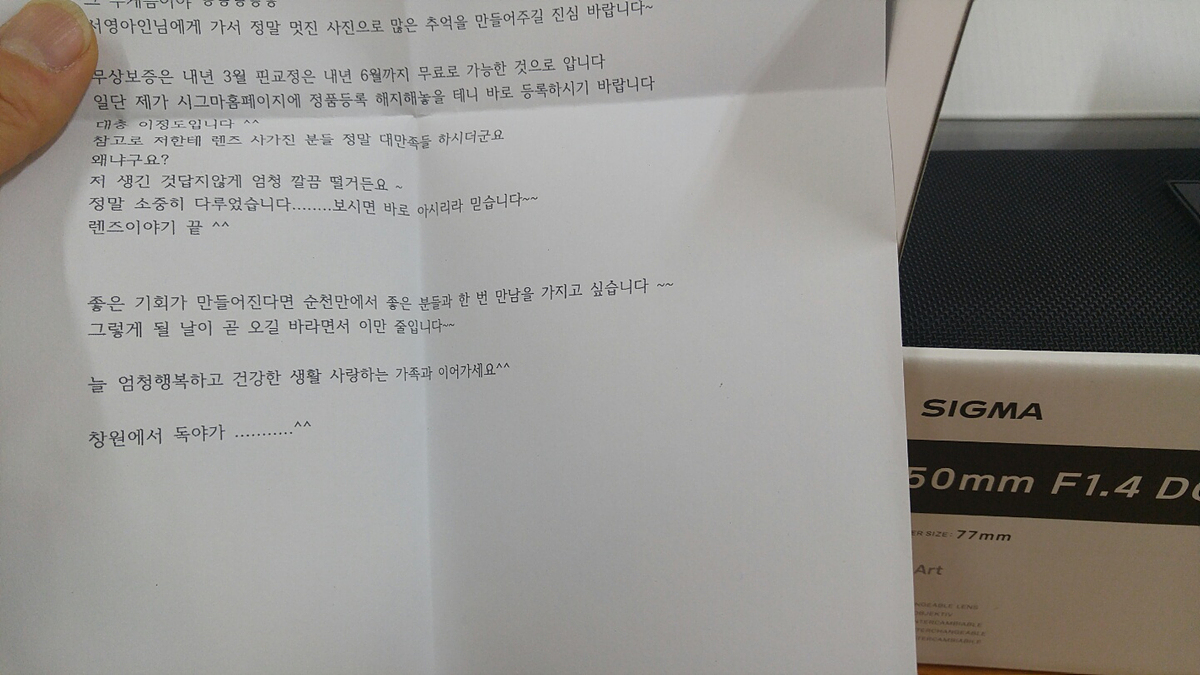 서영아인님에게 가서 정말 멋진 사진으로 많은 추억을 만들어주길 진심 바랍니다~
무상보증은 내년 3월 핀교정은 내년 6월까지 무료로 가능한 것으로 압니다
일단 제가 시그마홈페이지에 정품등록 해지해놓을 테니 바로 등록하시기 바랍니다
대충 이정도입니다 ^^
참고로 저한테 렌즈 사가진 분들 정말 대만족들 하시더군요
왜냐구요?
저 생긴 것답지않게 엄청 깔끔 떨거든요 ~
정말 소중히 다루었습니다........보시면 바로 아시리라 믿습니다~~
렌즈이야기 끝 ^^
좋은 기회가 만들어진다면 순천만에서 좋은 분들과 한 번 만남을 가지고 싶습니다 ~~
그렇게 될 날이 곧 오길 바라면서 이만 줄입니다~~
늘 엄청행복하고 건강한 생활 사랑하는 가족과 이어가세요^^
창원에서 독야가 ...........^^
SIGMA
50mm F1.4 D
ER SIZE : 77mm
Art
NGEABLE LENS
OBJEKTIV
TERCAMBIABLE
TERCHANGEABLE
TERCAMBIABILE